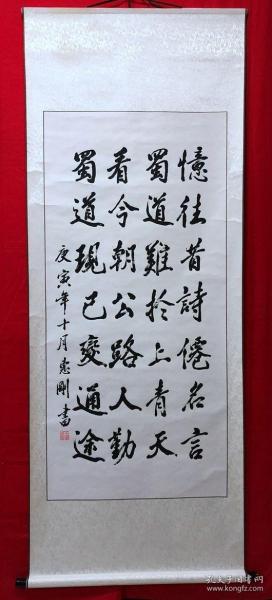 憶往昔詩僊名言
蜀道難於上青天
看今朝公路人勤
蜀道現已变通途
庚寅年十月惠剛書
孔夫子旧书网